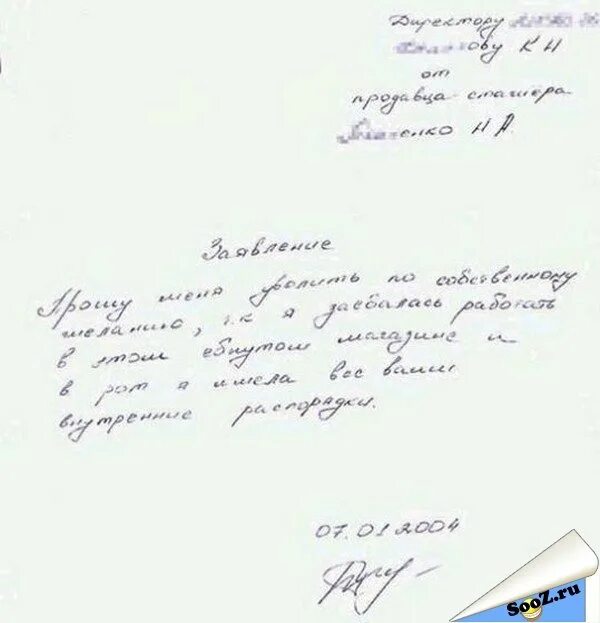 Директору
ову К Н
от
продавца-стажёра
енко Н А.
Заявление
Прошу меня уволить по собственному
желанию, т.к я заебалась работать
в этом ебнутом магазине и
в рот я имела все ваши
внутренние распорядки.
07.01 2004
SooZ.ru